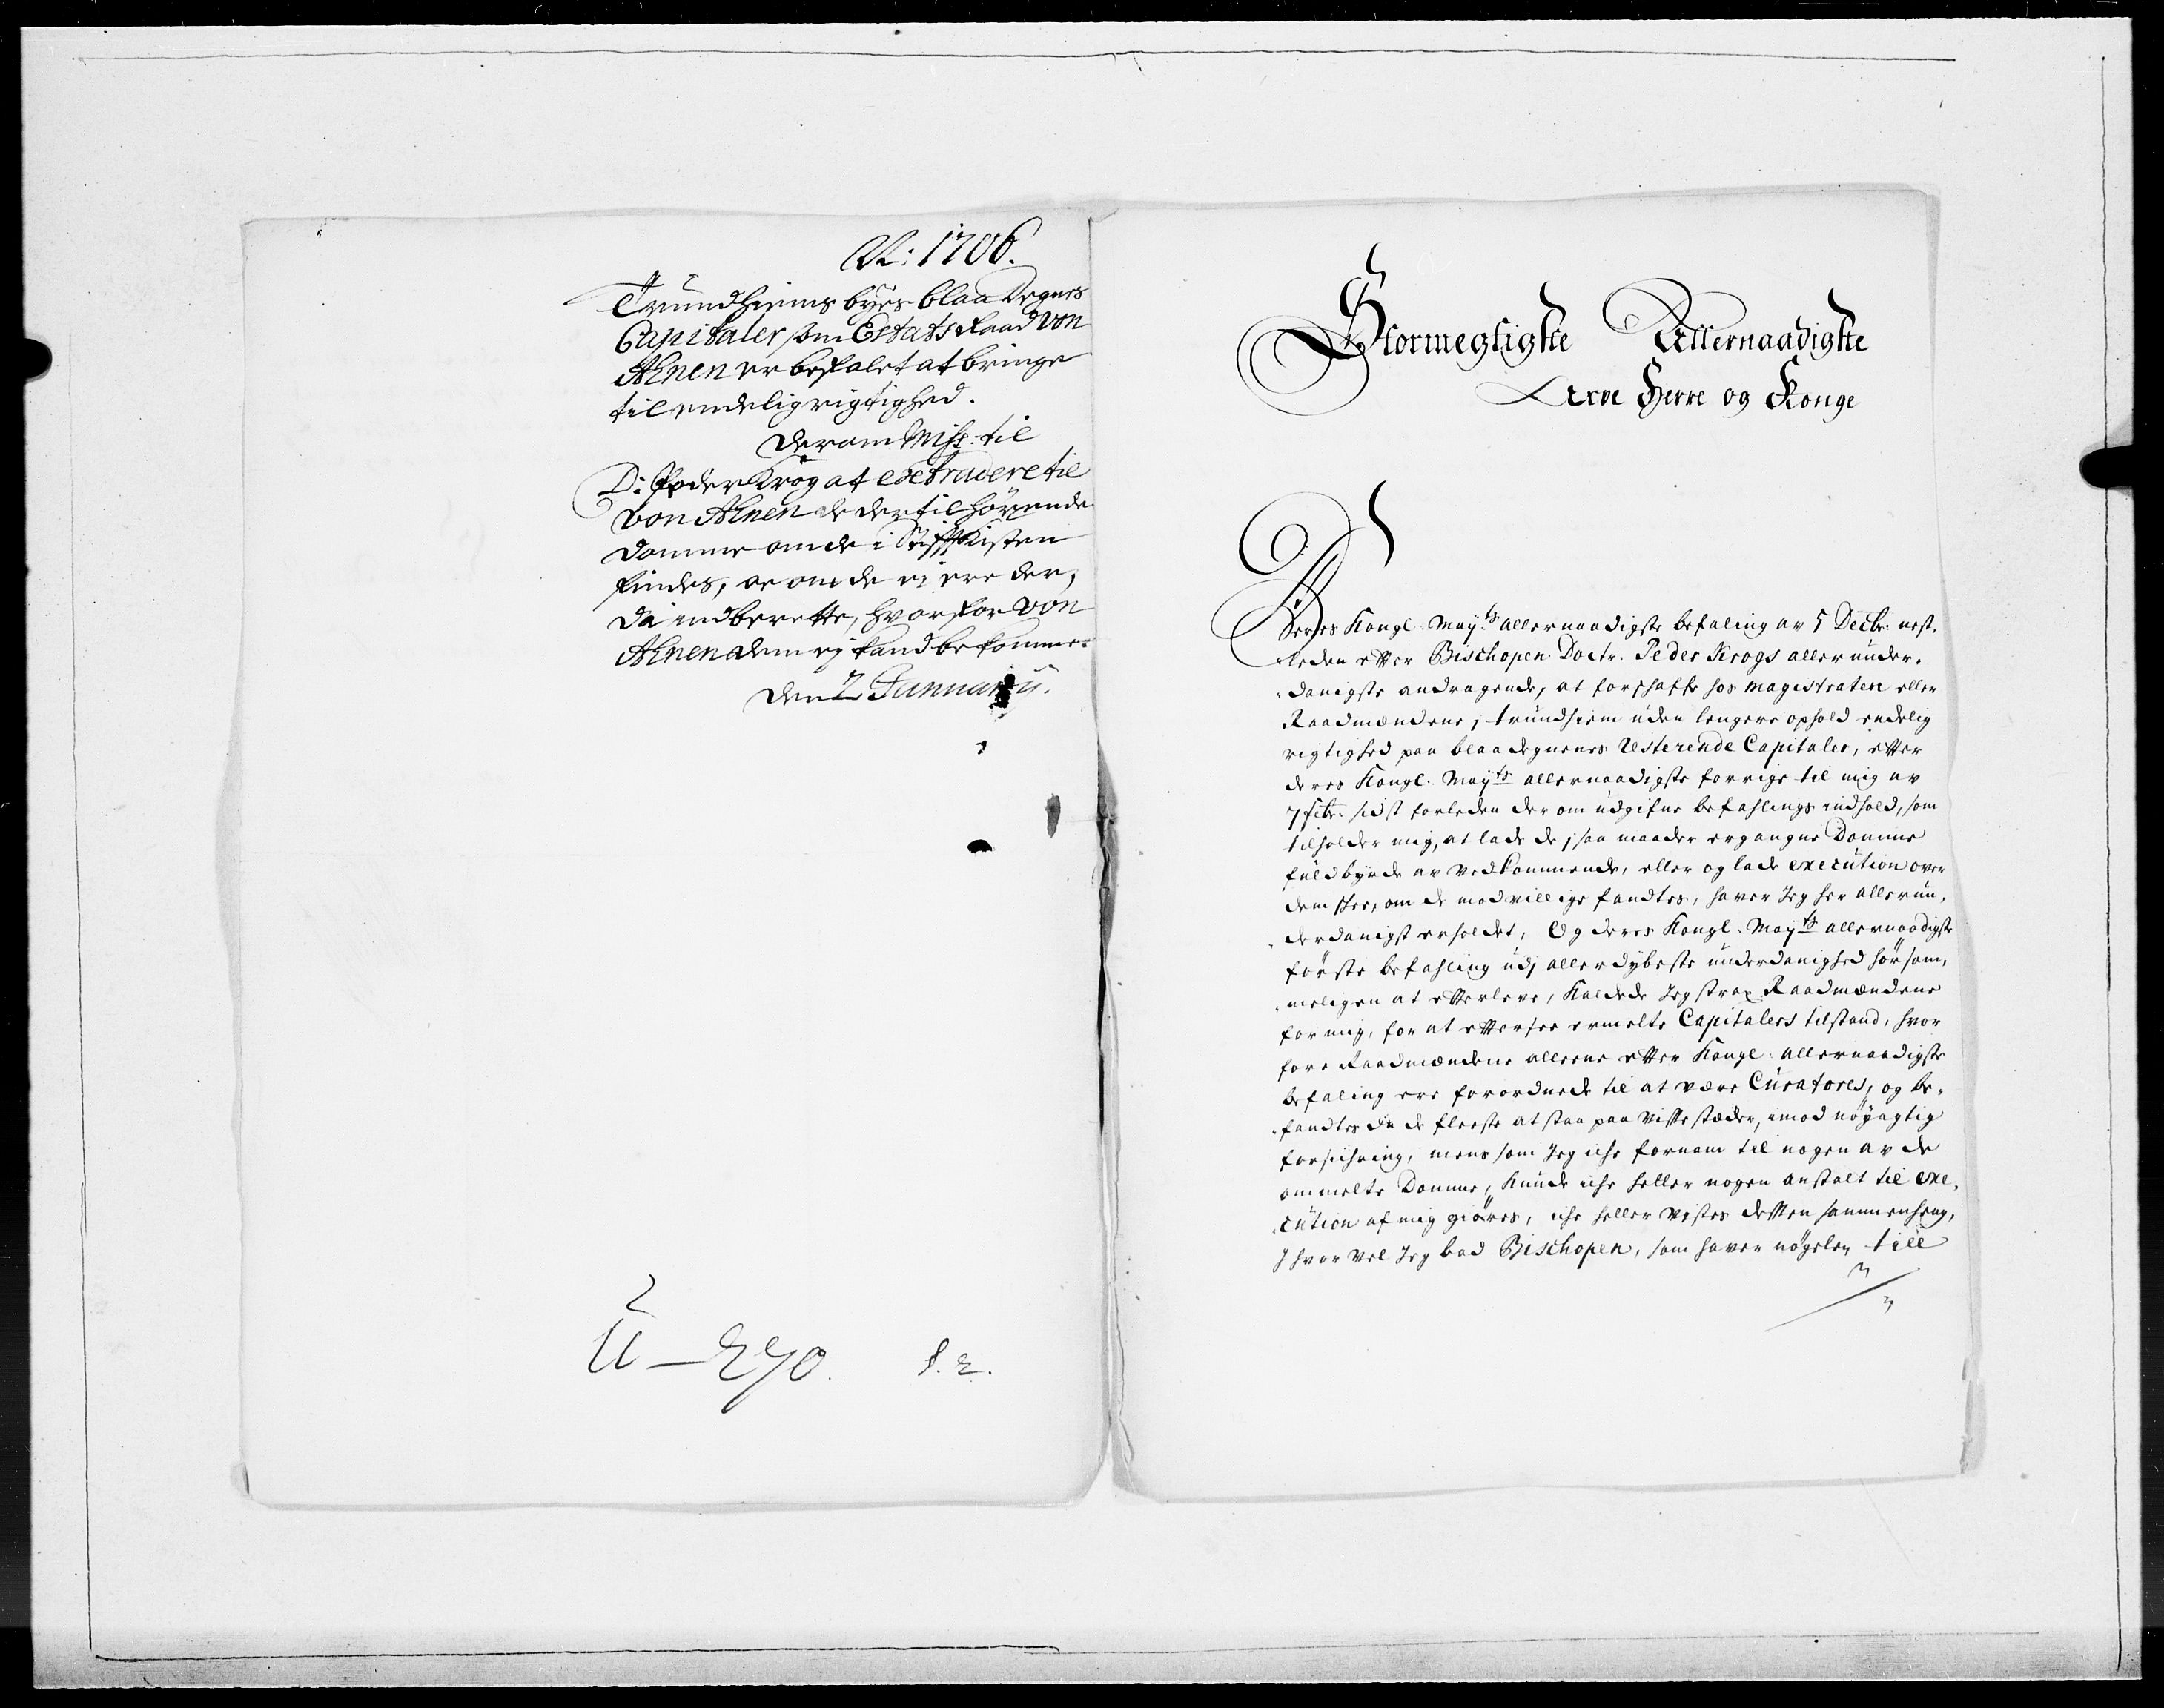 Ao: 1706.
Trundhiems byes blaa Degnes
Capitaler som Estats Raad von
Ahnen er befalet at bringe
til endelig rigtighed.
Derom Miss: til
D: Peder Krog at extradere til
von Ahnen de dertil hörende
Domme om de i Stifft Kisten
findes, oc om de ej ere der,
da indberette, hvorfor von
Ahnen dem ej kand bekomme.
den 2 January.
2
U — 270. f. 2.
Stormegtigste Allernaadigste
Arve Herre og Konge
Deres Kongl. Mayts allernaadigste befaling av 5 Decbr. nest,
leden etter Bischopen Doctr. Peder Krogs allerunder,
danigste andragende, at forschaffe hos Magistraten eller
Raadmændene j trundhiem uden lengere ophold endelig
rigtighed paa blaadegnenes Resterende Capitaler, etter
deres Kongl. Mayts allernaadigste forrige til mig av
7 sidst forleden der om udgifne befahlings indhold, som
tilholder mig, at lade de j saa maader ergangne Domme
fuldbyrde av vedkommende, eller og lade execution over
dem schee, om de modvillige fandtes, haver Jeg her allerun,
derdanigst erholdet, Og deres Kongl. Mayts allernaadigste
förste befahling udj allerdybeste underdanighed hörsom,
meligen at etterleve, Kaldede Jeg strax Raadmændene
for mig, for at ettersee ermelte Capitalers tilstand, hvor
fore Raadmændene alleene etter Kongl. allernaadigste
befaling ere forordnede til at være Curatores, og be,
fandtes da de fleeste at staa paa visse stæder, imod nöyagtig
forsichring, mens som Jeg iche fornam til nogen av de
ommelte Domme, Kunde iche heller nogen anstalt til exe,
cution af mig giöres, iche heller vistes desten sammenheng,
J hvor vel Jeg bad Bischopen, som haver nögelen till